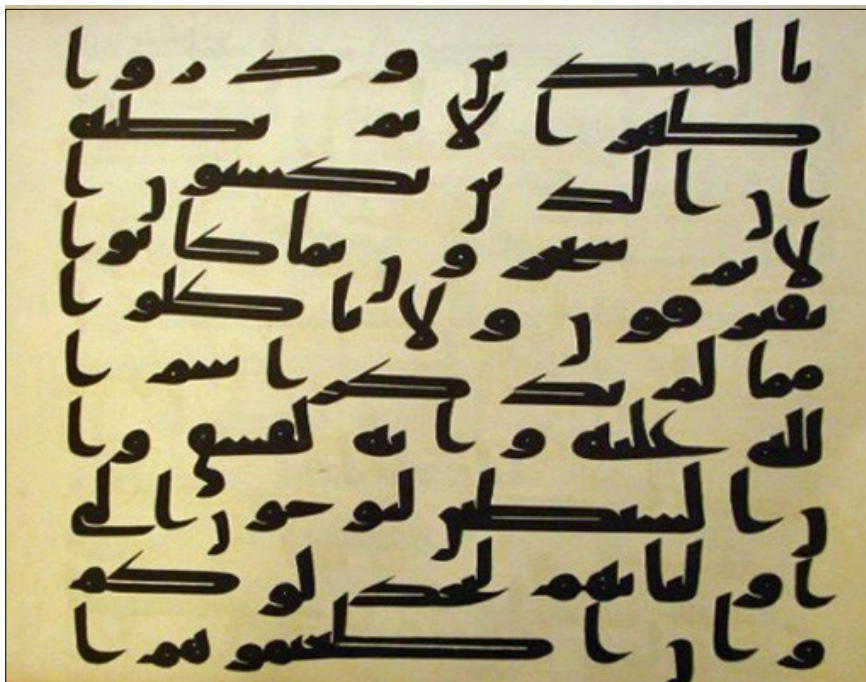 بالمعتدين وذروا
ظهر الاثم وبطنه
ان الذين يكسبون ا
لاثم سيجزون بما كانوا
يقترفون ولا تاكلوا
مما لم يذكر اسم ا
لله عليه وانه لفسق وا
ن الشيطين ليوحون الى
اوليائهم ليجدلوكم
وان اطعتموهم ا